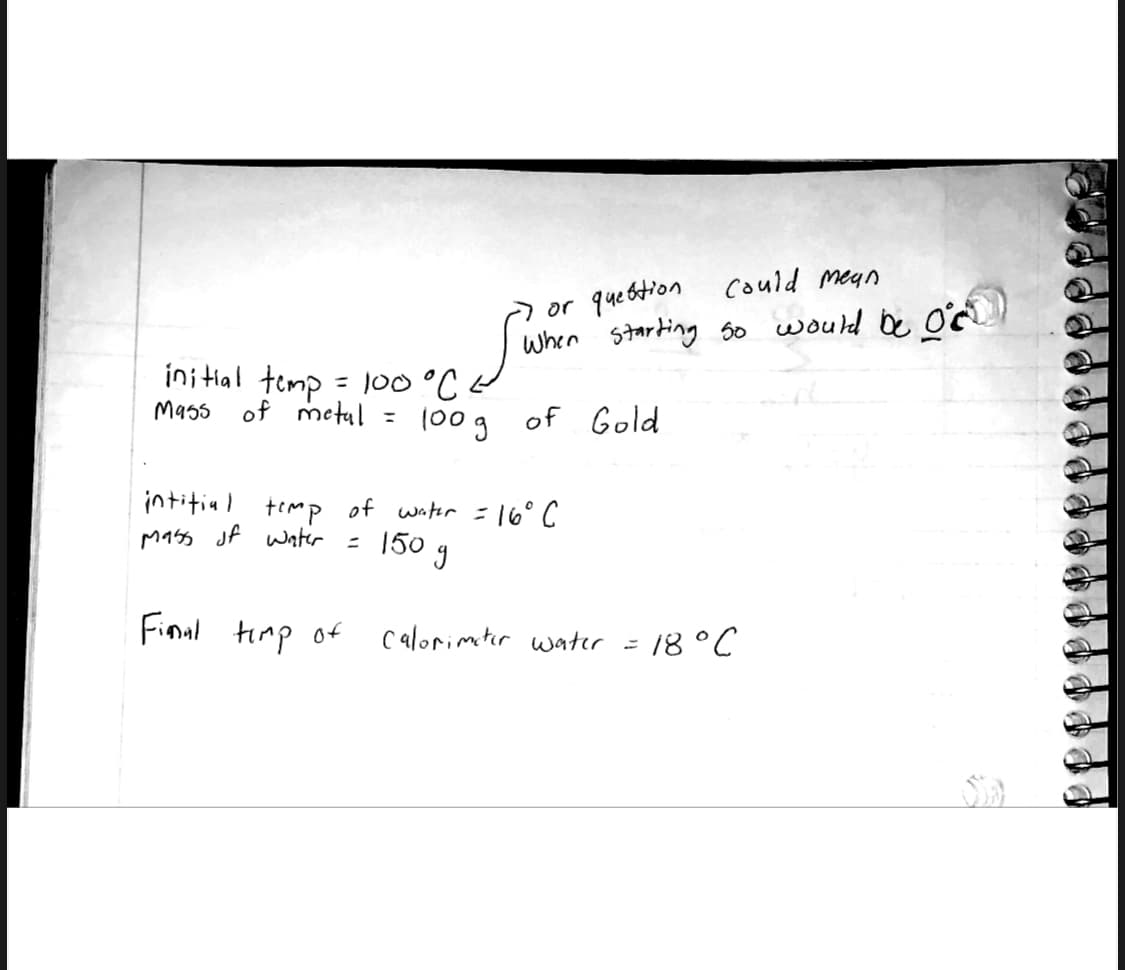 or question could mean
When starting so would be 0°C
initial temp = 100 °C
Mass of metal = 100 g of Gold
intitial temp of water = 16° C
Mass of water = 150 g
Final temp of calorimeter water = 18 °C